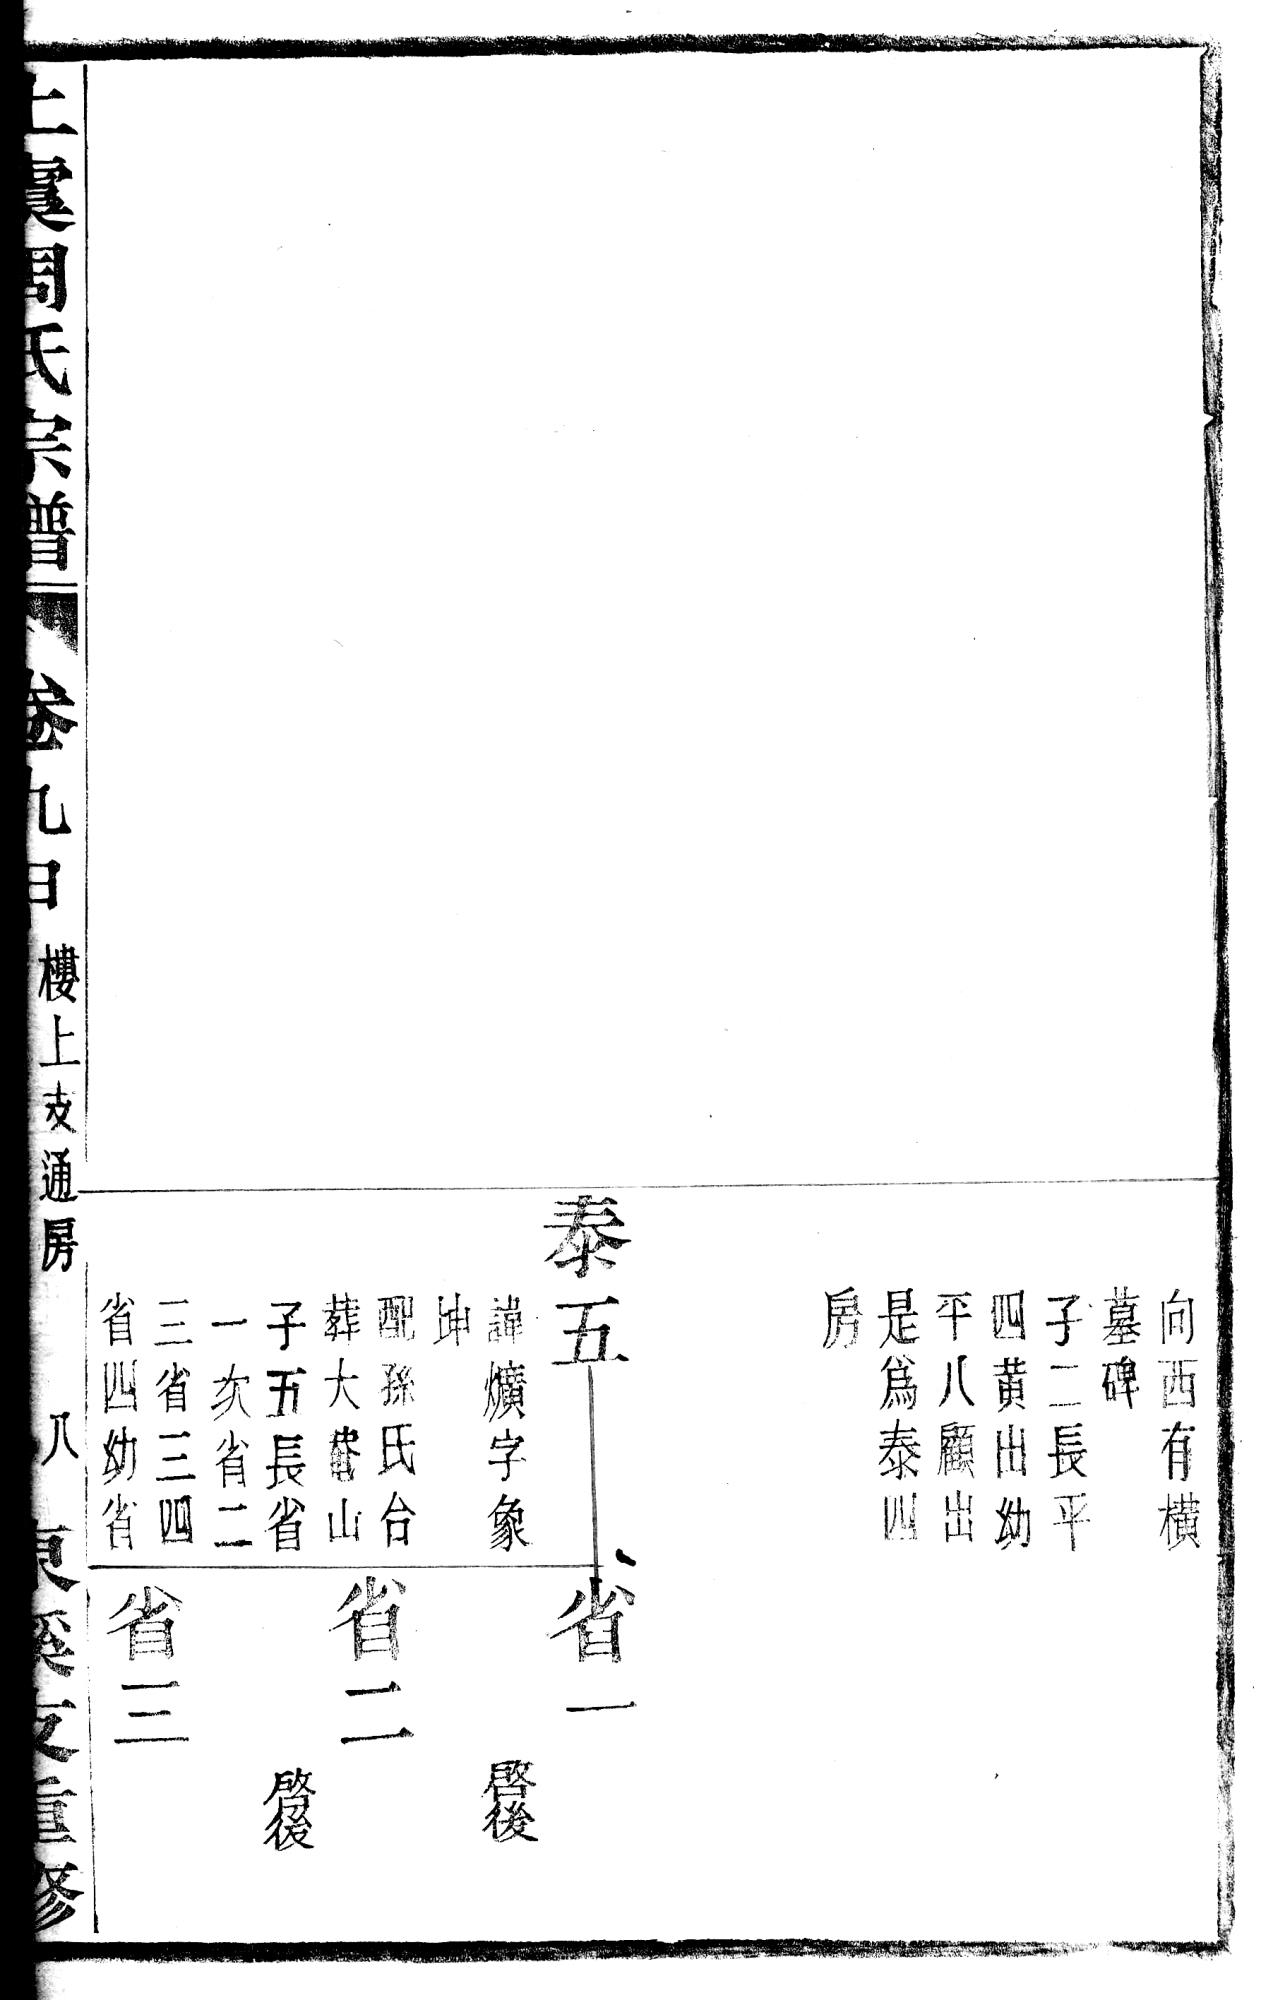 向西有橫
墓碑
子二長平
四黄出幼
平八顧出
是爲泰四
房
泰五
諱爌字象
坤
配孫氏台
葬大山
子五長省
一次省二
三省三四
省四幼省
省一
啓後
省二
啓後
省三
上虞周氏宗譜
卷九中
樓上支通房
八
東溪支重修